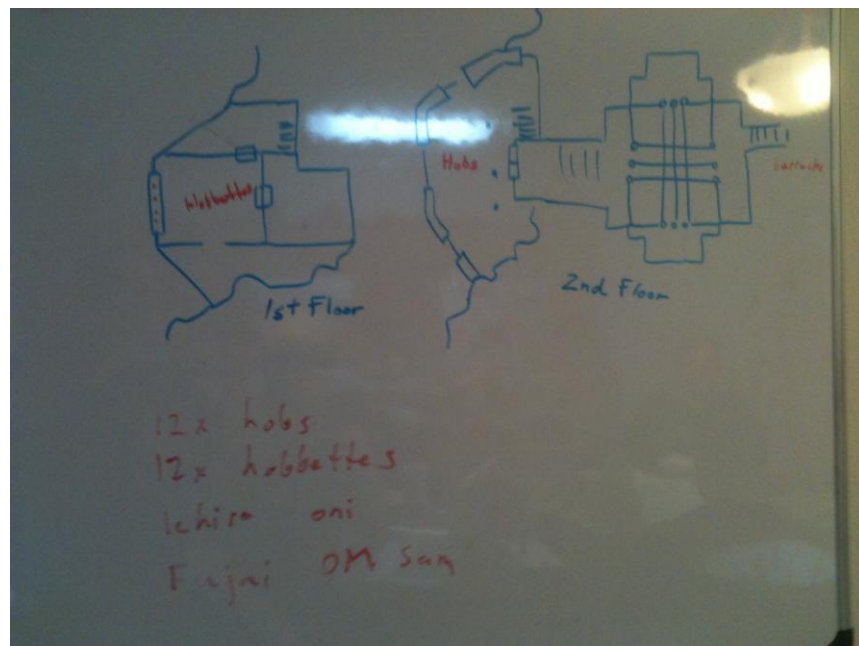 Hobs
barracks
Hobbettes
1st Floor
2nd Floor
12x hobs
12x hobbettes
Ichiro oni
Fujai OM Sam